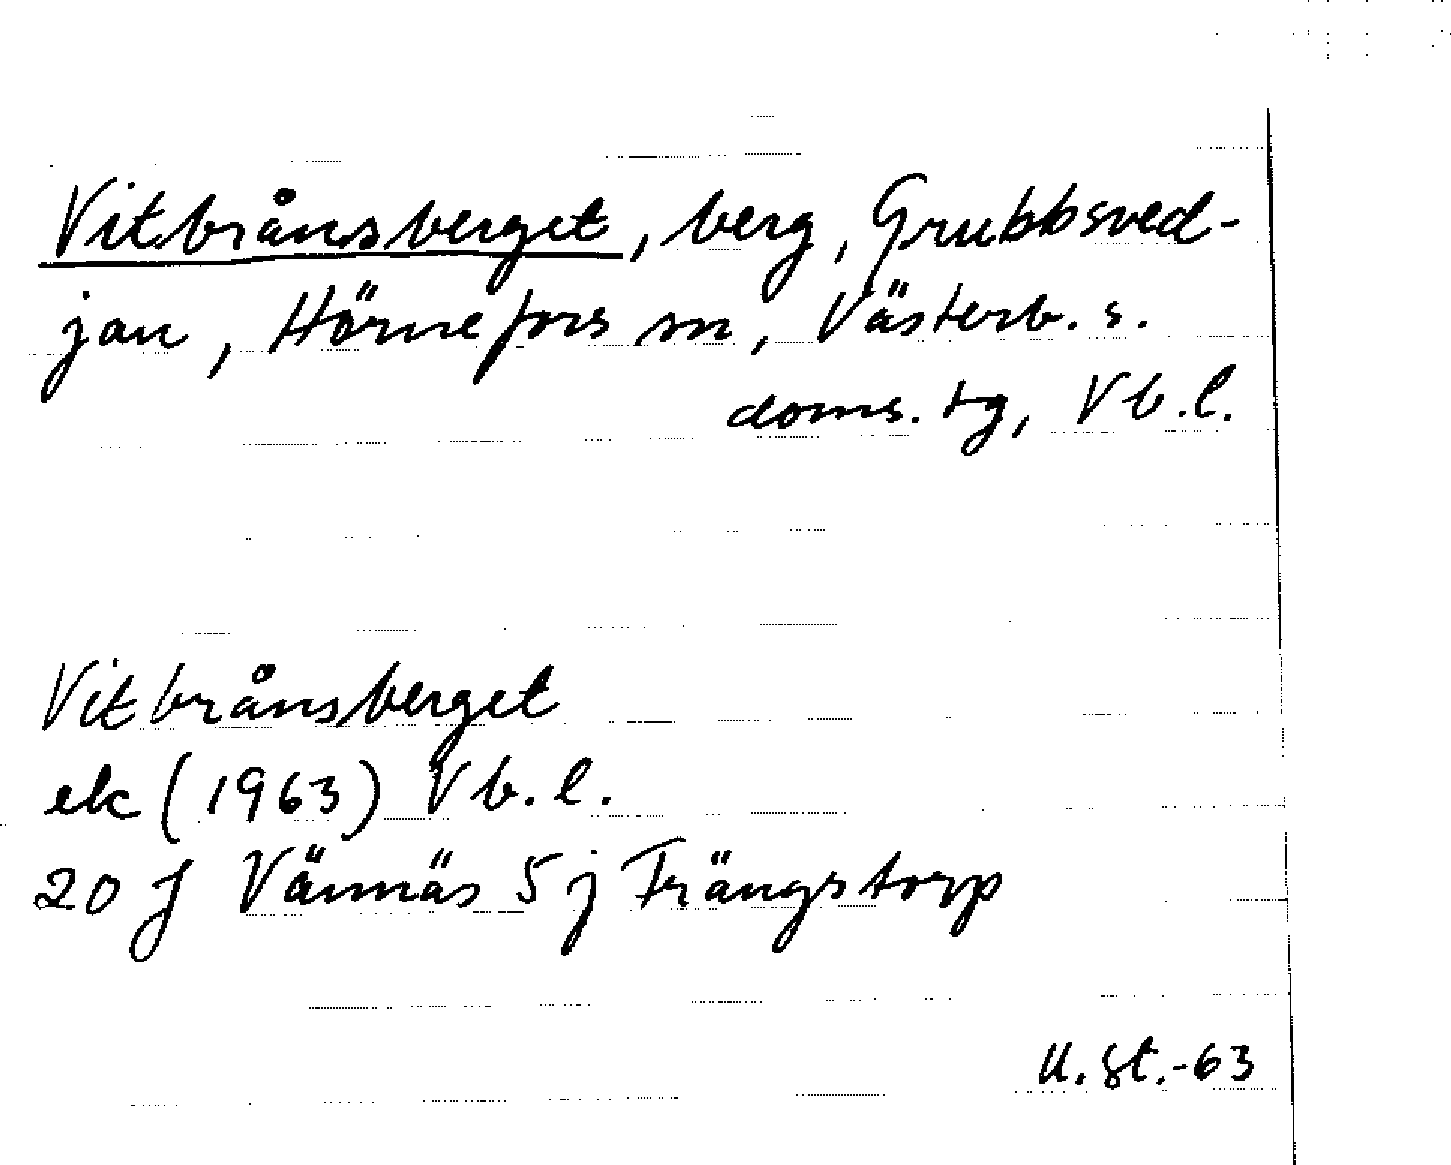 Vitbrånsberget, berg, Grubbsved-
jan, Hörnefors sn, Västerb. s.
doms. tg, Vb.l.
Vitbrånsberget
ek (1963) Vb.l.
20 J Vännäs 5 j Trängstorp
U. St.-63